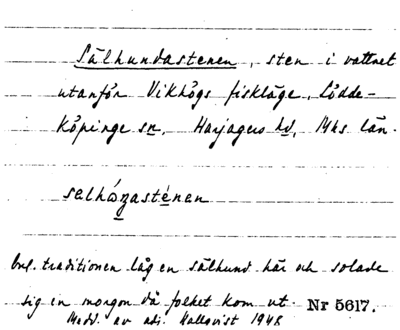 Sälhundastenen, sten i vattnet
utanför Vikhögs fiskläge, Lödde-
köpinge sn, Harjagers hd, Mhs län.
selhóŋasténen
Enl. traditionen låg en sälhund här och solade
sig en morgon då folket kom ut. Nr 5617.
Medd. av adj. Hallqvist 1948